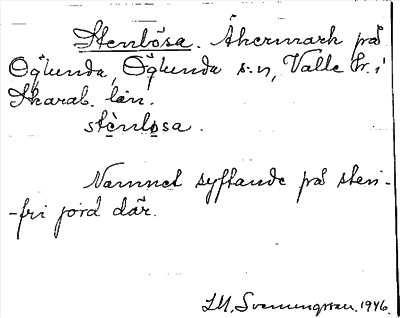 Stenlösa. Åkermark på
Öglunda, Öglunda s:n, Valle hr. i
Skarab. län.
stènlo̱sa.
Namnet syftande på sten-
-fri jord där.
I.M. Svenungsson. 1946.